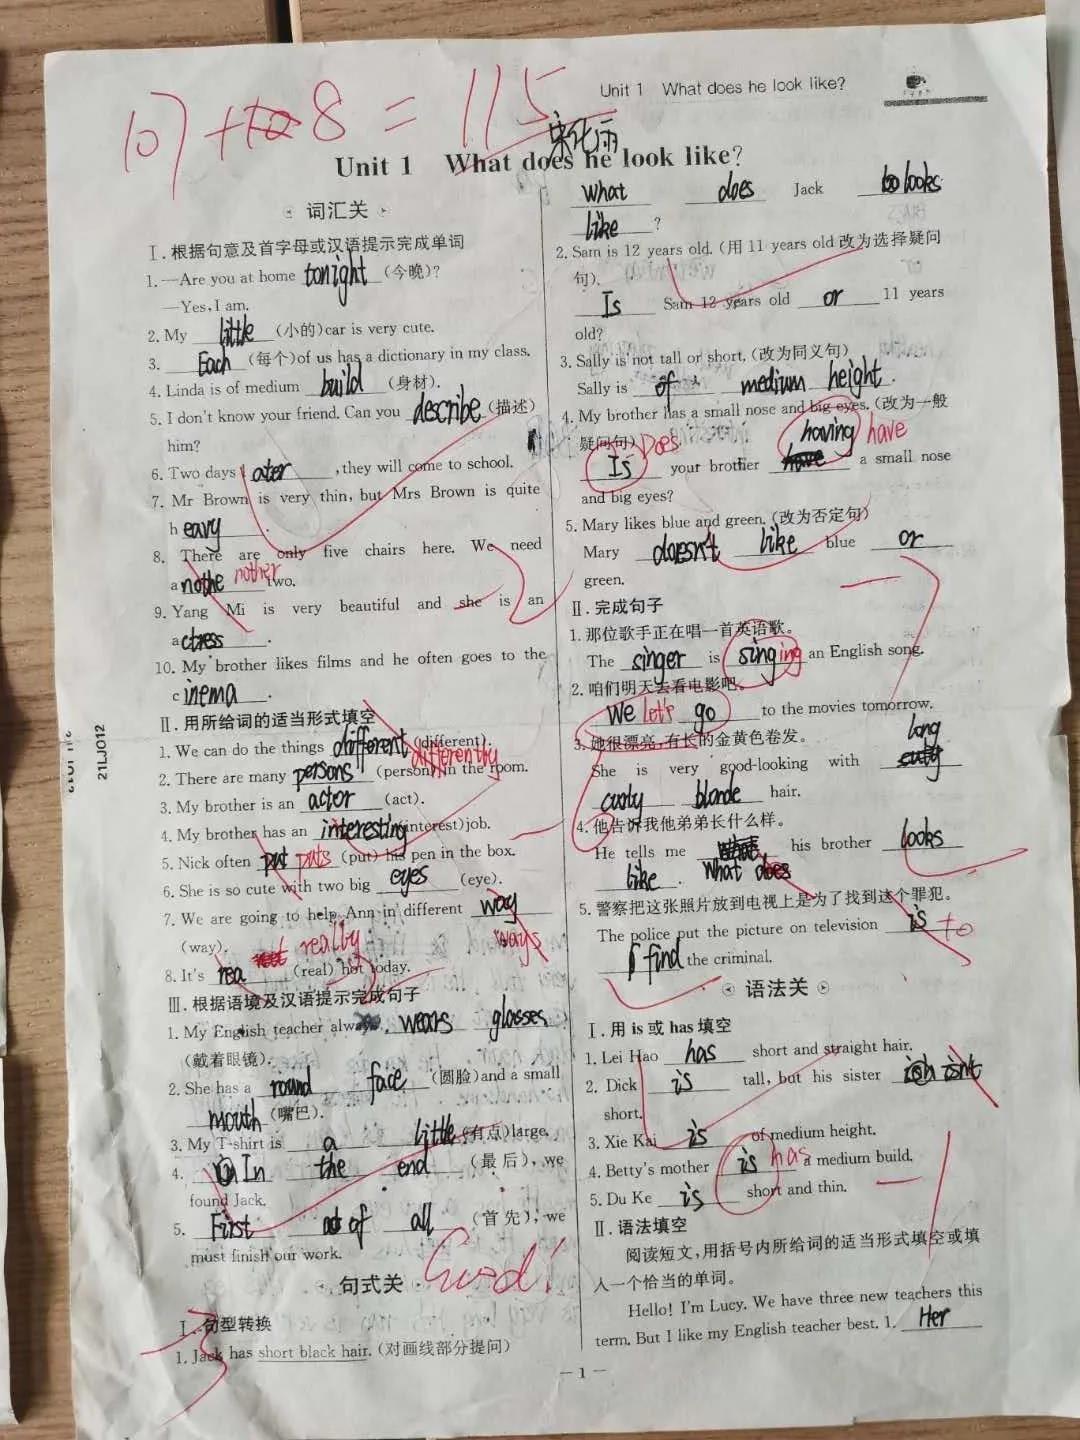 Unit 1 What does he look like?
107+8=115
Unit 1 What does he look like?
词汇关
Ⅰ.根据句意及首字母或汉语提示完成单词
1.—Are you at home tonight (今晚)?
—Yes,I am.
2. My little (小的)car is very cute.
3. Each (每个)of us has a dictionary in my class.
4. Linda is of medium build (身材).
5. I don't know your friend. Can you describe (描述)
him?
6. Two days later, they will come to school.
7. Mr Brown is very thin, but Mrs Brown is quite
heavy.
8. There are only five chairs here. We need
anothe nother two.
9. Yang Mi is very beautiful and she is an
actress.
10. My brother likes films and he often goes to the
cinema.
Ⅱ.用所给词的适当形式填空
1. We can do the things different (different).
differently
2. There are many persons (person) in the room.
3. My brother is an actor (act).
4. My brother has an interesting (interest)job.
5. Nick often put puts (put) his pen in the box.
6. She is so cute with two big eyes (eye).
7. We are going to help Ann in different way
(way). ways
really
8. It's rea (real) hot today.
Ⅲ.根据语境及汉语提示完成句子
1. My English teacher always wears glasses
(戴着眼镜).
2. She has a round face (圆脸)and a small
mouth (嘴巴).
3. My T-shirt is a little (有点)large.
4. In the end (最后), we
found Jack.
5. First of all (首先), we
must finish our work.
句式关 Good!
Ⅰ.句型转换
1. Jack has short black hair. (对画线部分提问)
What does Jack looks
like ?
2. Sam is 12 years old. (用 11 years old 改为选择疑问
句)
Is Sam 12 years old or 11 years
old?
3. Sally is not tall or short. (改为同义句)
Sally is of medium height.
4. My brother has a small nose and big eyes. (改为一般
疑问句) Does having have
Is your brother a small nose
and big eyes?
5. Mary likes blue and green. (改为否定句)
Mary doesn't like blue or
green.
Ⅱ.完成句子
1. 那位歌手正在唱一首英语歌。
The singer is singing an English song.
2. 咱们明天去看电影吧。
We Let's go to the movies tomorrow.
3. 她很漂亮,有长的金黄色卷发。
long
She is very good-looking with
curly blonde hair.
4. 他告诉我他弟弟长什么样。
He tells me his brother looks
like. what does
5. 警察把这张照片放到电视上是为了找到这个罪犯。
The police put the picture on television is to
find the criminal.
语法关
Ⅰ.用 is 或 has 填空
1. Lei Hao has short and straight hair.
2. Dick is tall, but his sister isnt
short.
3. Xie Kai is of medium height.
4. Betty's mother is has a medium build.
5. Du Ke is short and thin.
Ⅱ.语法填空
阅读短文,用括号内所给词的适当形式填空或填
入一个恰当的单词。
Hello! I'm Lucy. We have three new teachers this
term. But I like my English teacher best. 1. Her
21LJO12
— 1 —